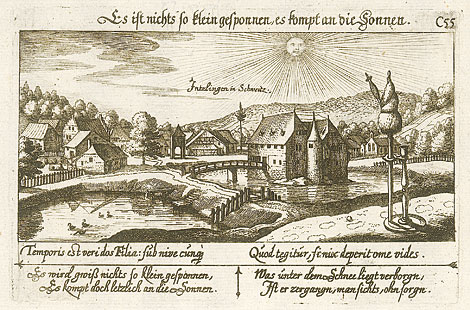 Es ist nichts so klein gesponnen, es kompt an die Sonnen.
C55
Inzlingen in Schweitz.
Temporis est veri dos Filia: sub nive cunq̃
Quod tegitur, si nix deperit omne vides.
Es wird gwiß nichts so klein gesponnen,
Es kompt doch letzlich an die Sonnen.
Was unter dem Schnee liegt verborgn,
Ist er zergangn, man sichts, ohn sorgn.